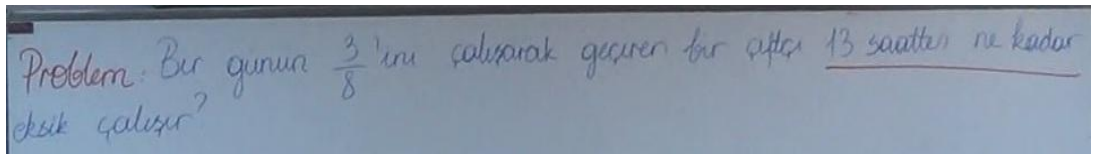 Problem: Bir günün 3/8 'ini çalışarak geçiren bir çiftçi 13 saatten ne kadar
eksik çalışır?